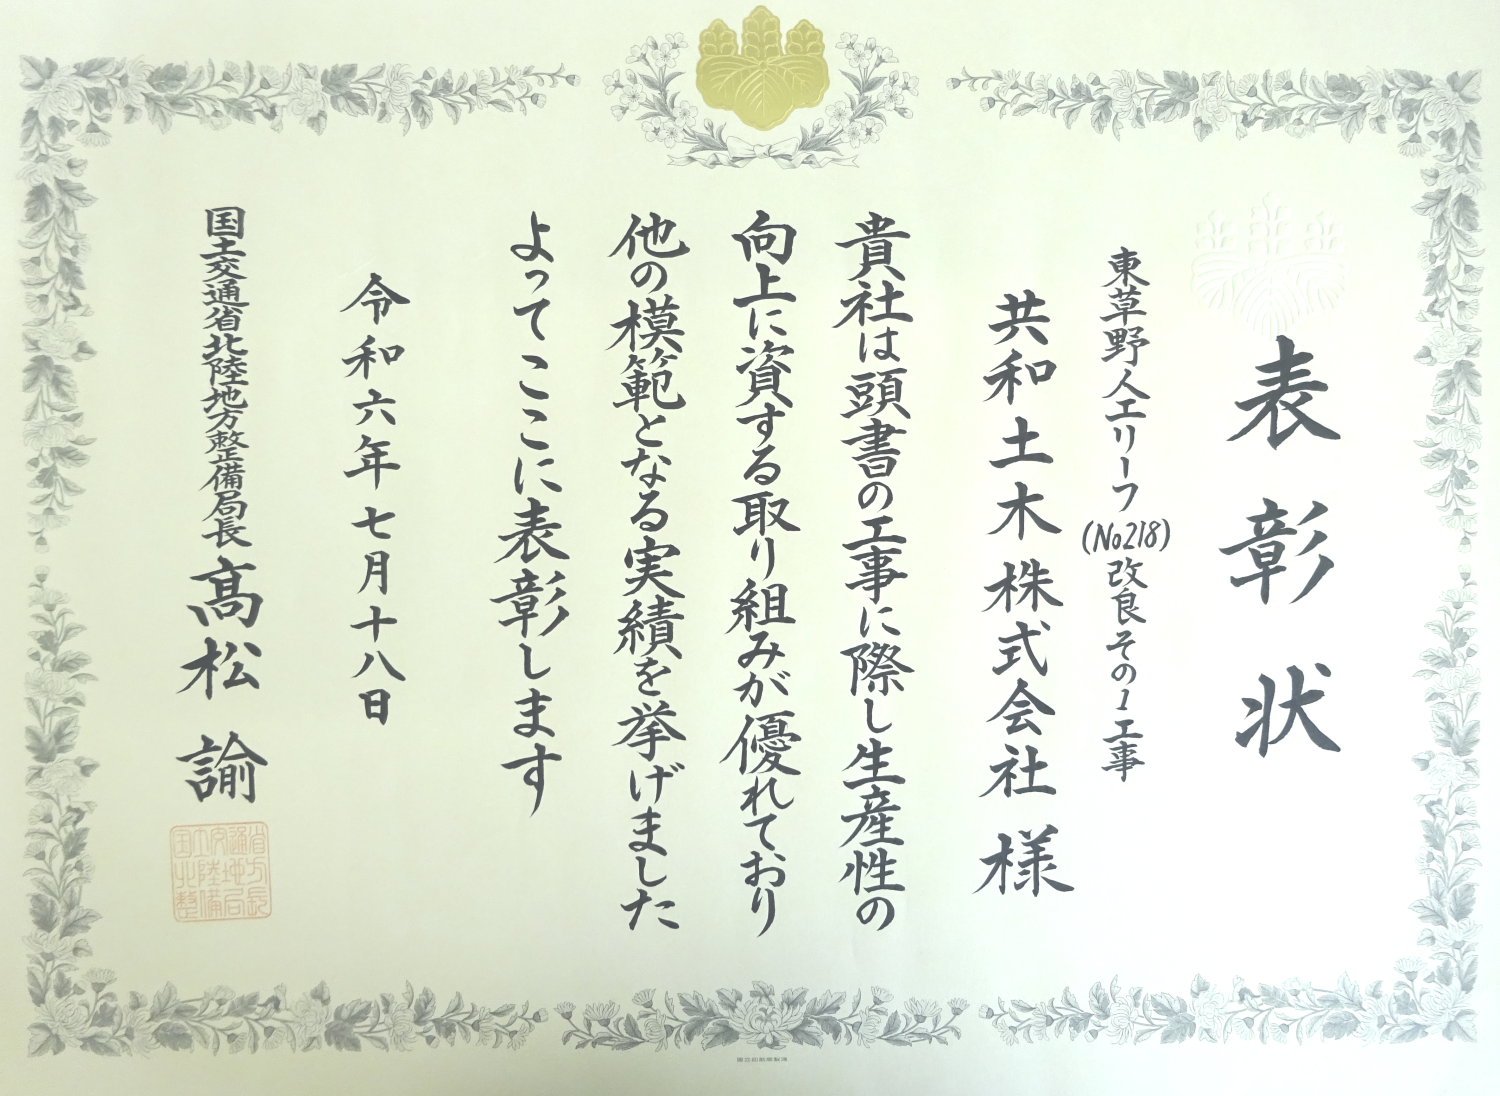 表彰状
東草野人工リーフ(No218)改良その1工事
共和土木株式会社様
貴社は頭書の工事に際し生産性の
向上に資する取り組みが優れており
他の模範となる実績を挙げました
よってここに表彰します
令和六年七月十八日
国土交通省北陸地方整備局長髙松諭